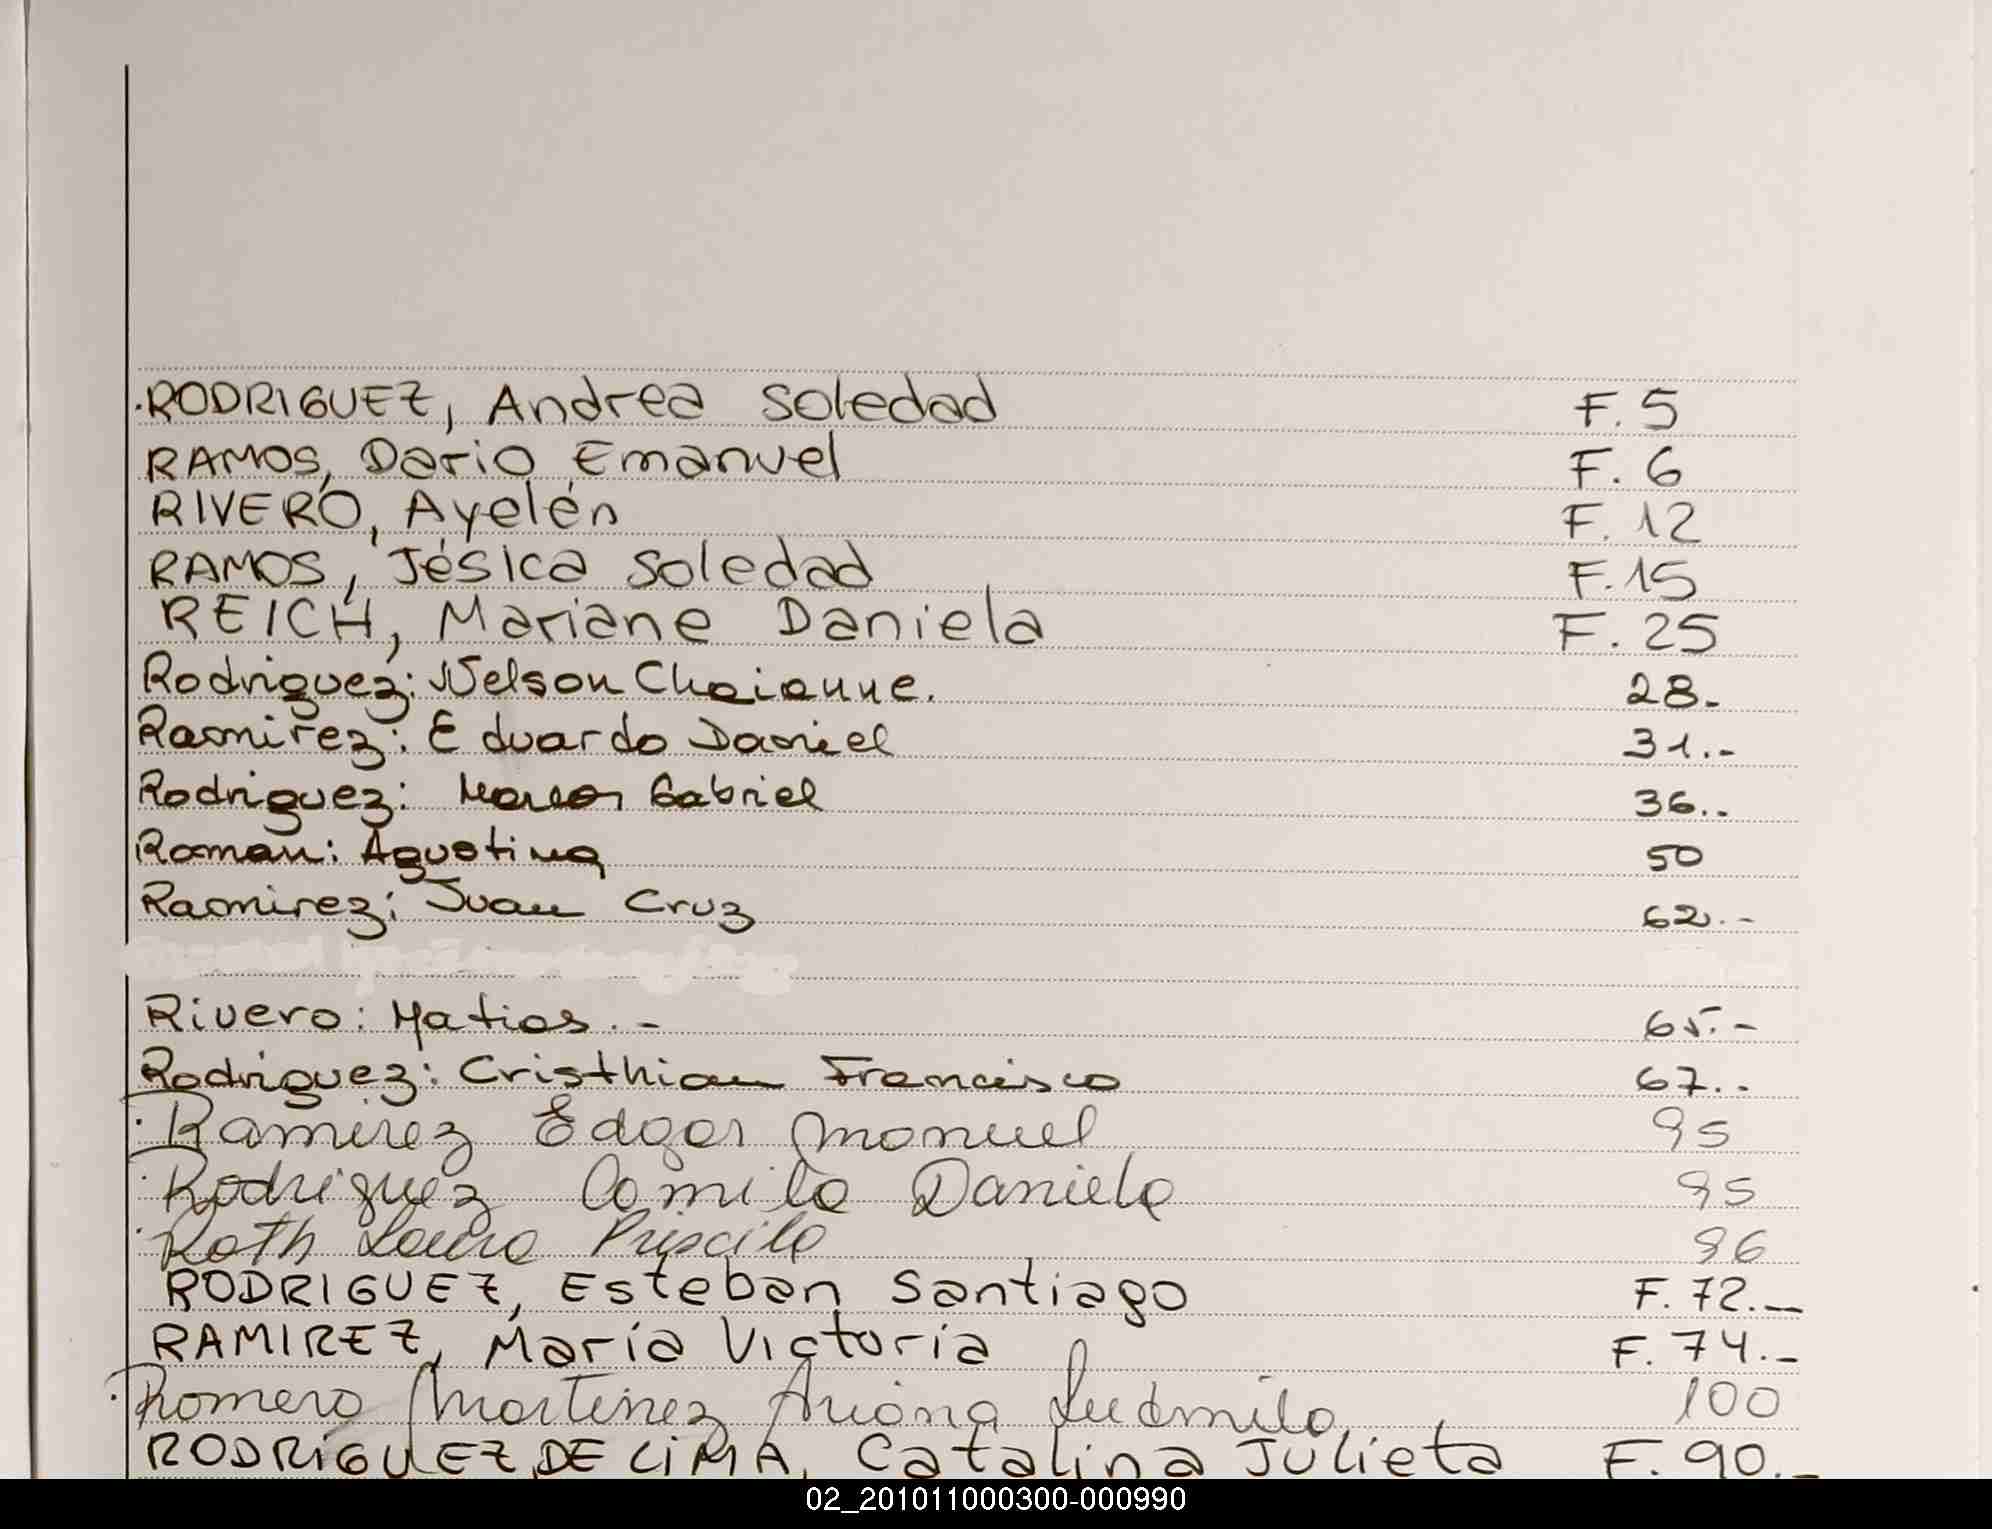 .RODRIGUEZ, Andrea Soledad F. 5
RAMOS, Dario Emanuel F. 6
RIVERO, Ayelén F. 12
RAMOS, Jésica Soledad F. 15
REICH, Mariane Daniela F. 25
Rodriguez: Nelson Chaianne. 28.-
Ramirez: Eduardo Daniel 31.-
Rodriguez: Marcos Gabriel 36..
Roman: Agustina 50
Ramirez; Juan Cruz 62.-
Rivero: Matias.- 65.-
Rodriguez: Cristhian Francisco 67..
.Ramirez Edgar Manuel 95
.Rodriguez Camila Daniela 95
.Roth Laura Priscila 96
RODRIGUEZ, Esteban Santiago F. 72.-
RAMIREZ, María Victoria F. 74.-
.Romero Martinez Ariana Ludmila 100
RODRÍGUEZ DE LIMA, Catalina Julieta F. 90.-
02_201011000300-000990